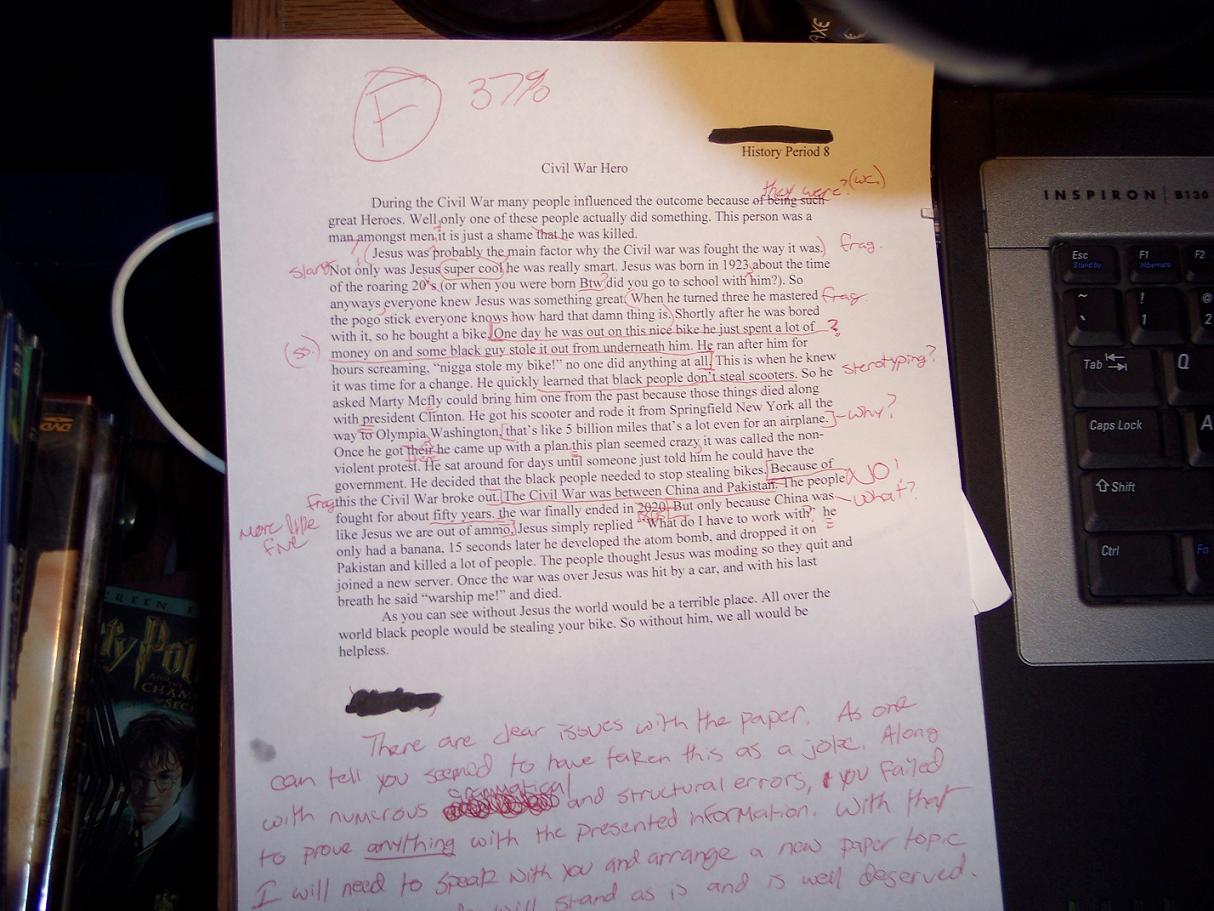 F 37%
History Period 8
Civil War Hero
they were? (wc.)
During the Civil War many people influenced the outcome because of being such
great Heroes. Well only one of these people actually did something. This person was a
man amongst men it is just a shame that he was killed.
Jesus was probably the main factor why the Civil war was fought the way it was. frag.
slang Not only was Jesus super cool he was really smart. Jesus was born in 1923 about the time
of the roaring 20's (or when you were born Btw did you go to school with him?). So
anyways everyone knew Jesus was something great. When he turned three he mastered frag.
the pogo stick everyone knows how hard that damn thing is. Shortly after he was bored
with it, so he bought a bike. One day he was out on this nice bike he just spent a lot of ?
money on and some black guy stole it out from underneath him. He ran after him for
hours screaming, “nigga stole my bike!” no one did anything at all. This is when he knew
it was time for a change. He quickly learned that black people don't steal scooters. So he sterotyping?
asked Marty Mcfly could bring him one from the past because those things died along
with president Clinton. He got his scooter and rode it from Springfield New York all the
way to Olympia Washington, that's like 5 billion miles that's a lot even for an airplane. - why?
Once he got their he came up with a plan this plan seemed crazy it was called the non-
there
violent protest. He sat around for days until someone just told him he could have the
government. He decided that the black people needed to stop stealing bikes. Because of
frag this the Civil War broke out. The Civil War was between China and Pakistan. The people NO!
fought for about fifty years. the war finally ended in 2020. But only because China was what?
More like five
like Jesus we are out of ammo, Jesus simply replied “What do I have to work with” he
only had a banana, 15 seconds later he developed the atom bomb, and dropped it on
Pakistan and killed a lot of people. The people thought Jesus was moding so they quit and
joined a new server. Once the war was over Jesus was hit by a car, and with his last
breath he said “warship me!” and died.
As you can see without Jesus the world would be a terrible place. All over the
world black people would be stealing your bike. So without him, we all would be
helpless.
There are clear issues with the paper. As one
can tell you seemed to have taken this as a joke. Along
with numerous grammatical and structural errors, you failed
to prove anything with the presented information. With that
I will need to speak with you and arrange a new paper topic
will stand as is and is well deserved.
INSPIRON B130
Esc
Standby
F1
Hibernate
F2
~
`
!
1
@
2
Tab
Q
Caps Lock
A
Shift
Ctrl
Fn
DVD
AXE